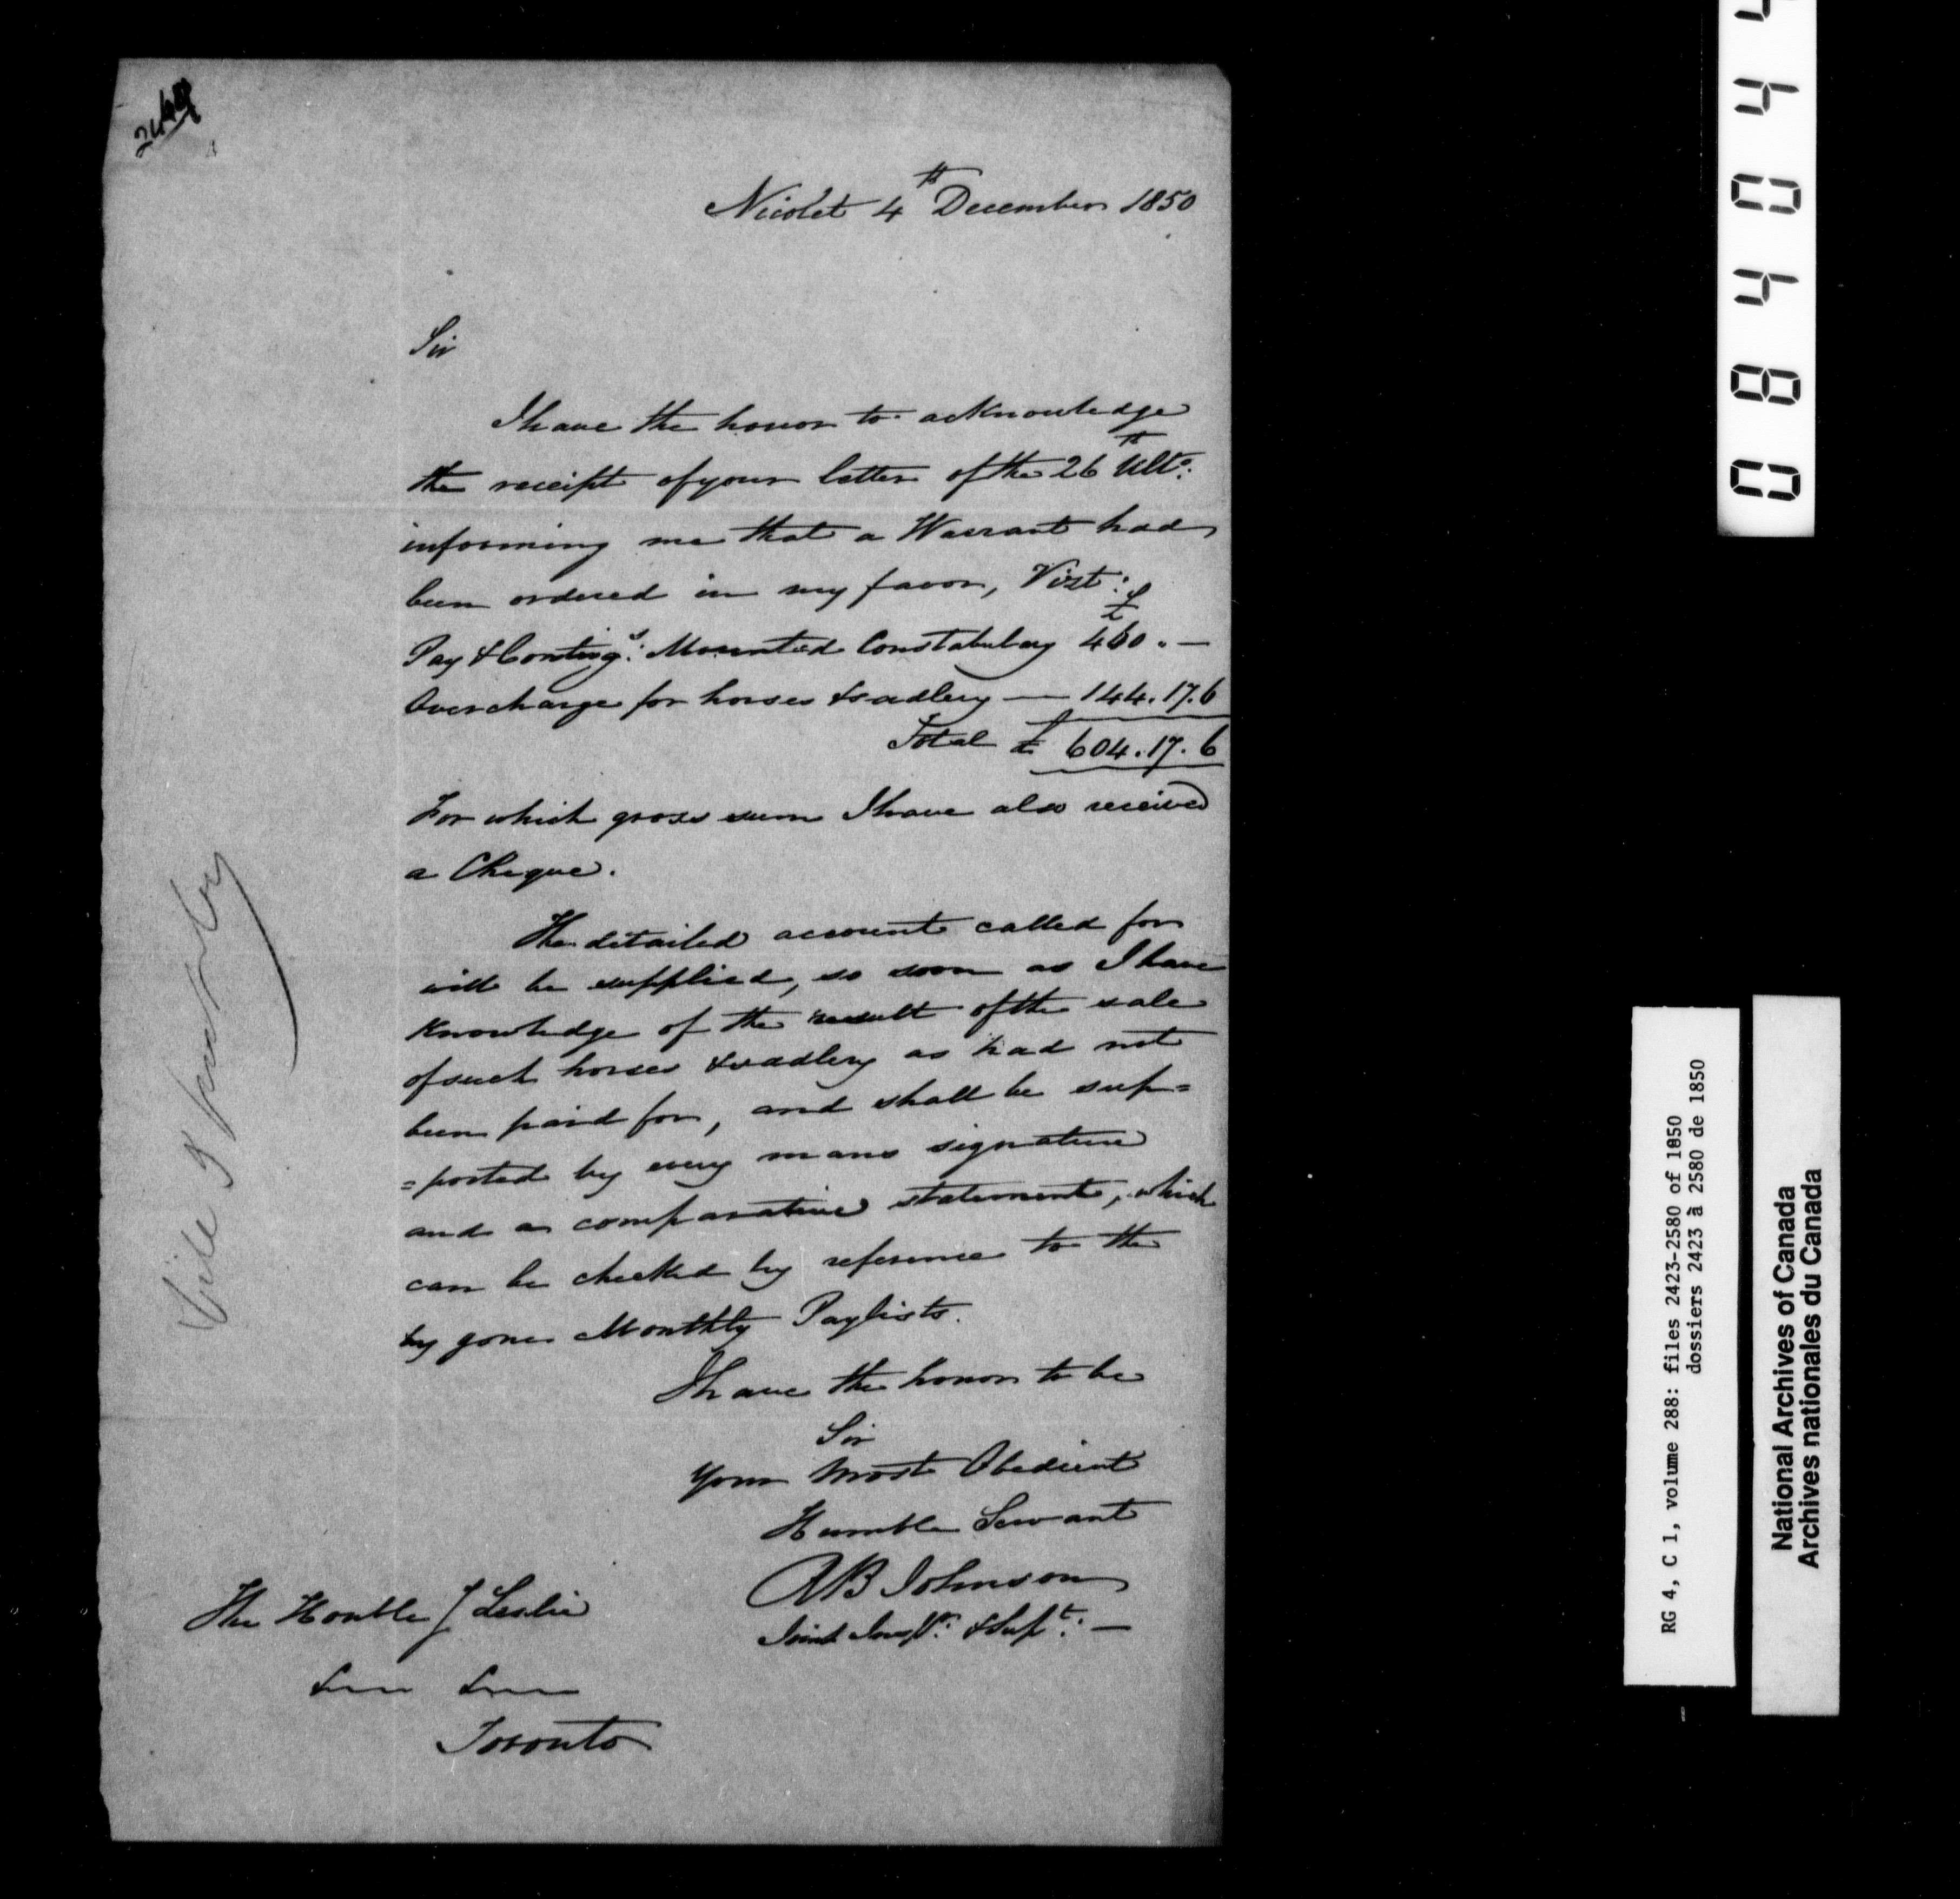 Nicolet 4th December 1850
Sir
I have the honor to acknowledge
the receipt of your letter of the 26th Ulto:
informing me that a Warrant had
been ordered in my favor, Vizt:
£
Pay & Conting.s: Mounted Constabulary 460 " —
Overcharge for horses & sadlery — 144.17.6
Total £ 604.17.6
For which gross sum I have also received
a Cheque.
The detailed account called for
will be supplied, so soon as I have
knowledge of the result of the sale
of such horses & sadlery as had not
been paid for, and shall be sup=
=ported by every mans signature
and a comparative statement, which
can be checked by reference to the
by gone Monthly Paylists.
I have the honor to be
Sir
Your Most Obedient
Humble Servant
Johnson
Joint Inspr: & Supt: —
The Honble J Leslie
Toronto
0 8 4 0 4 4
RG 4, C 1, volume 288: files 2423-2580 of 1850
dossiers 2423 à 2580 de 1850
National Archives of Canada
Archives nationales du Canada